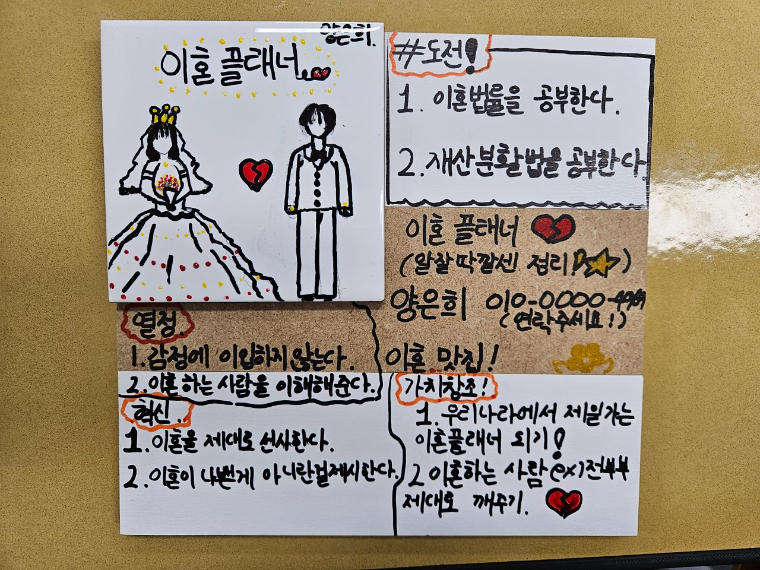 양은희.
이혼 플래너
#도전!
1. 이혼법률을 공부한다.
2. 재산분할법을 공부한다.
이혼 플래너
(알잘딱깔센 정리!)
양은희 010-0000-4989
(연락주세요!)
이혼 맛집!
열정.
1. 감정에 이입하지않는다.
2. 이혼하는 사람을 이해해준다.
혁신..
1. 이혼을 제대로 선사한다.
2. 이혼이 나쁜게 아니란걸제시한다.
가치창조!
1. 우리나라에서 제일가는
이혼플래너 되기!
2 이혼하는 사람 (ex)전부부
제대로 깨주기.